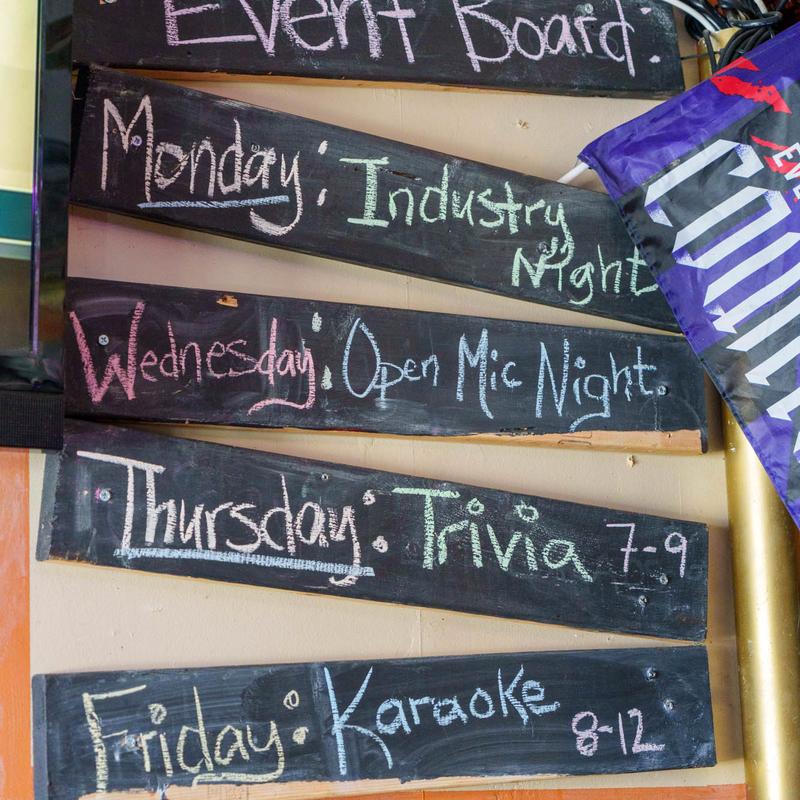 Event Board:
Monday: Industry
Night
Wednesday: Open Mic Night.
Thursday: Trivia 7-9
Friday: Karaoke 8-12